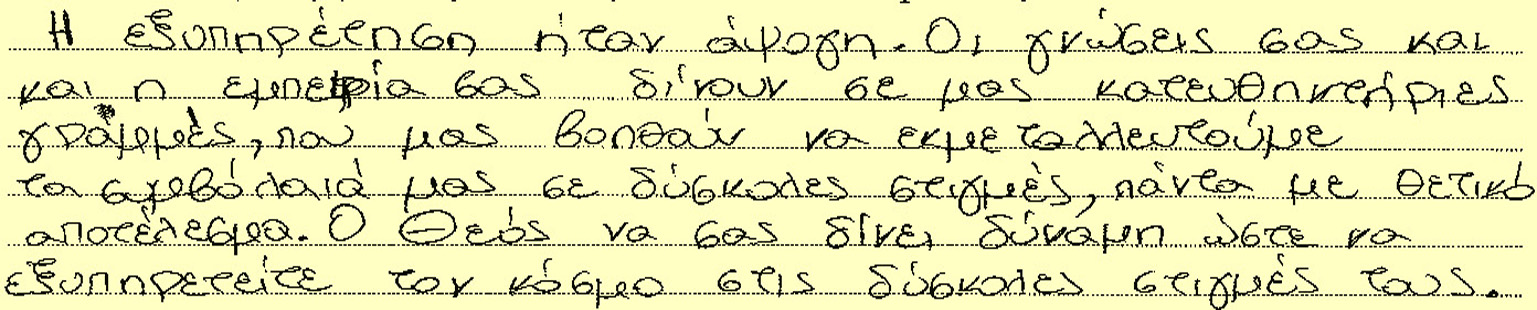 Η εξυπηρέτηση ήταν άψογη. Οι γνώσεις σας και
και η εμπειρία σας δίνουν σε μας κατευθηντήριες
γράμμές, που μας βοηθάν να εκμεταλλευτούμε
τα συμβόλαιά μας σε δύσκολες στιγμές, πάντα με θετικό
αποτέλεσμα. Ο Θεός να σας δίνει δύναμη ώστε να
εξυπηρετείτε τον κόσμο στις δύσκολες στιγμές τους.